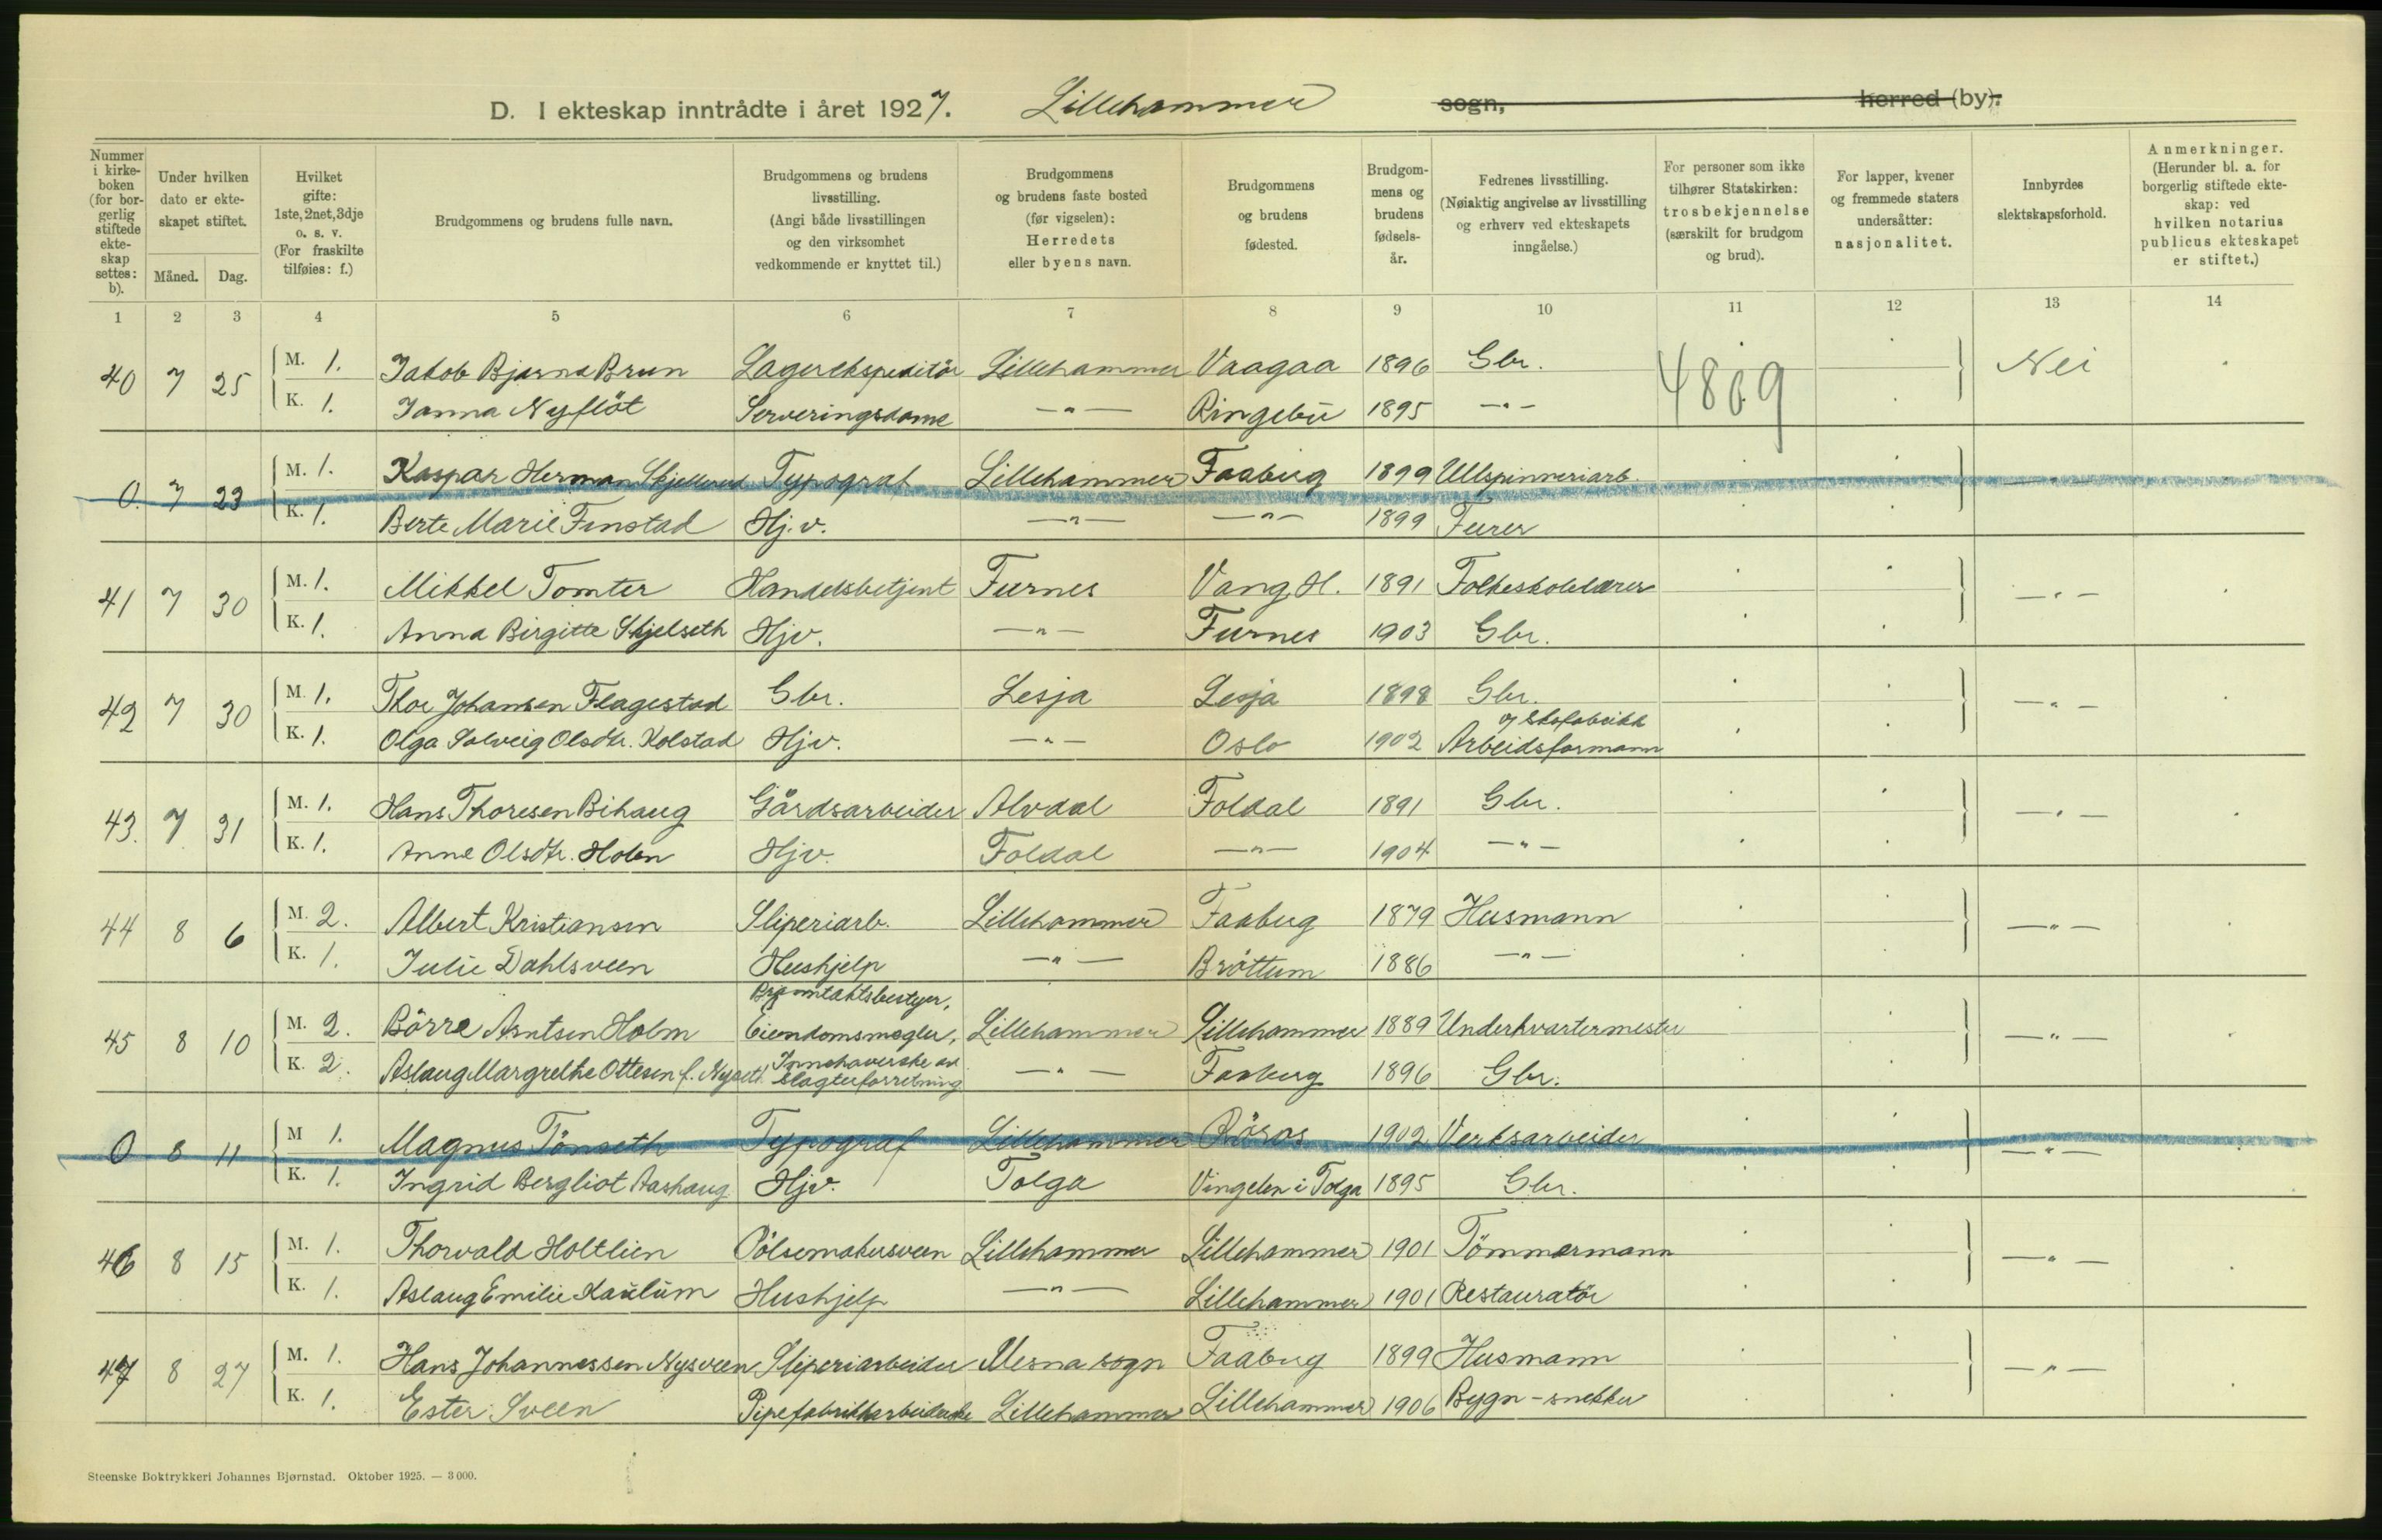 D. I ekteskap inntrådte i året 1927. Lillehammer sogn, herred (by).
Nummer i kirke-boken (for bor-gerlig stiftede ekte-skap settes: b).
Under hvilken dato er ekte-skapet stiftet.
Måned. Dag.
Hvilket gifte: 1ste, 2net, 3dje o. s. v. (For fraskilte tilføies: f.)
Brudgommens og brudens fulle navn.
Brudgommens og brudens livsstilling. (Angi både livsstillingen og den virksomhet vedkommende er knyttet til.)
Brudgommens og brudens faste bosted (før vigselen): Herredets eller byens navn.
Brudgommens og brudens fødested.
Brudgom-mens og brudens fødsels-år.
Fedrenes livsstilling. (Nøiaktig angivelse av livsstilling og erhverv ved ekteskapets inngåelse.)
For personer som ikke tilhører Statskirken: trosbekjennelse (særskilt for brudgom og brud).
For lapper, kvener og fremmede staters undersåtter: nasjonalitet.
Innbyrdes slektskapsforhold.
Anmerkninger. (Herunder bl. a. for borgerlig stiftede ekte-skap: ved hvilken notarius publicus ekteskapet er stiftet.)
1 2 3 4 5 6 7 8 9 10 11 12 13 14
40 7 25 M. 1. Jakob Bjarne Brun Lagerekspeditör Lillehammer Vaagaa 1896 Gbr. 4809 Nei
K. 1. Janna Nyflöt Serveringsdame —"— Ringebu 1895 —"—
0. 7 23 M. 1. Kaspar Herman Skjellerud Typograf Lillehammer Faaberg 1899 Ullspinneriarb. —"—
K. 1. Berte Marie Finstad Hj.v. —"— —"— 1899 Furer
41 7 30 M. 1. Mikkel Tomter Handelsbetjent Furnes Vang H. 1891 Folkeskolelærer —"—
K. 1. Anna Birgitte Skjelseth Hjv. —"— Furnes 1903 Gbr.
42 7 30 M. 1. Thor Johansen Flagestad Gbr. Lesja Lesja 1898 Gbr. —"—
K. 1. Olga Solveig Olsdtr. Kolstad Hjv. —"— Oslo 1902 Arbeidsformann skofabrikk
43. 7 31 M. 1. Hans Thoresen Bihaug Gårdsarbeider Alvdal Foldal 1891 Gbr. —"—
K. 1. Anne Olsdtr. Holen Hjv. Foldal —"— 1904 —"—
44 8 6 M. 2. Albert Kristiansen Sliperiarb. Lillehammer Faaberg 1879 Husmann —"—
K. 1. Julie Dahlsveen Hushjelp —"— Bröttum 1886 —"—
45 8 10 M. 2. Börre Arntsen Holm Eiendomsmegler, Lillehammer Lillehammer 1889 Underkvartermester —"—
K. 2. Aslaug Margrethe Ottesen f. Nyseth Innehaverske av slagterforretning —"— Faaberg 1896 Gbr.
0 8 11 M 1. Magnus Tönseth Typograf Lillehammer Röros 1902 Verksarbeider —"—
K. 1. Ingrid Bergliot Aashaug Hjv. Tolga Vingelen i Tolga 1895 Gbr.
46 8 15 M. 1. Thorvald Holtlien Pölsemakersveen Lillehammer Lillehammer 1901 Tömmermann —"—
K. 1. Aslaug Emilie Kaulum Hushjelp —"— Lillehammer 1901 Restauratör
47 8 27 M. 1. Hans Johannessen Nysveen Sliperiarbeider Mesna sogn Faaberg 1899 Husmann —"—
K. 1. Ester Sveen Pipefabrikkarbeiderske Lillehammer Lillehammer 1906 Bygn-snekker
Steenske Boktrykkeri Johannes Bjørnstad. Oktober 1925. — 3 000.